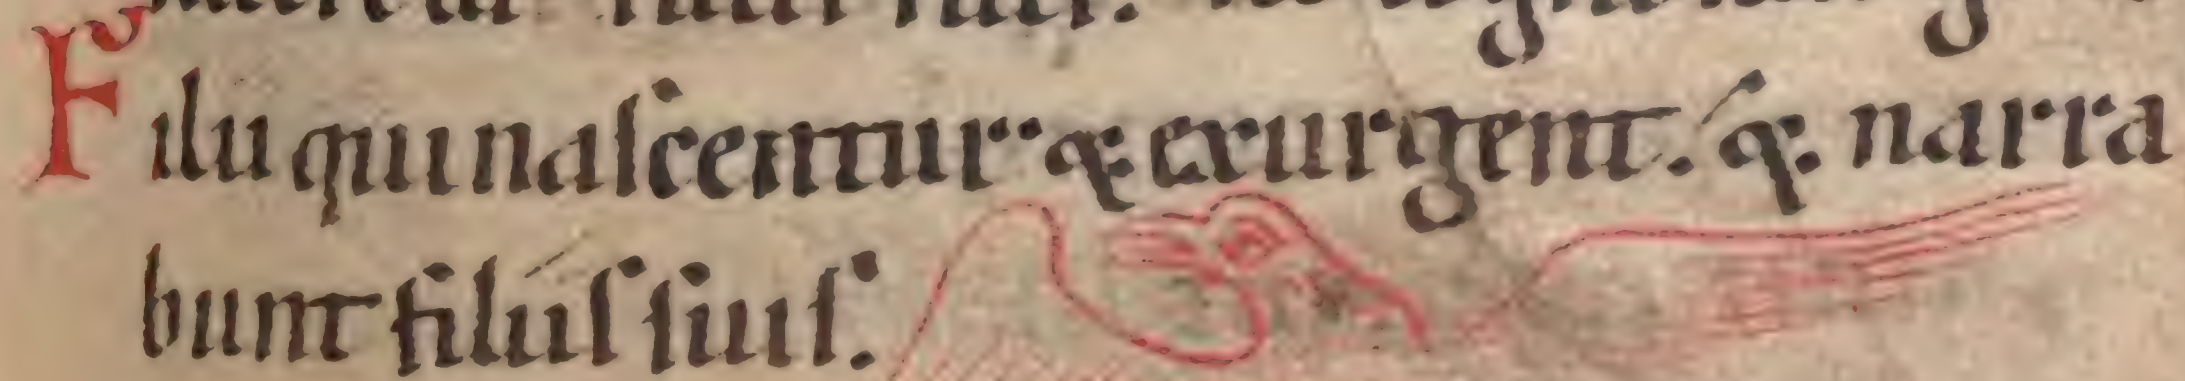 Filii qui nascentur & exurgent. & narra
bunt filiis suis.